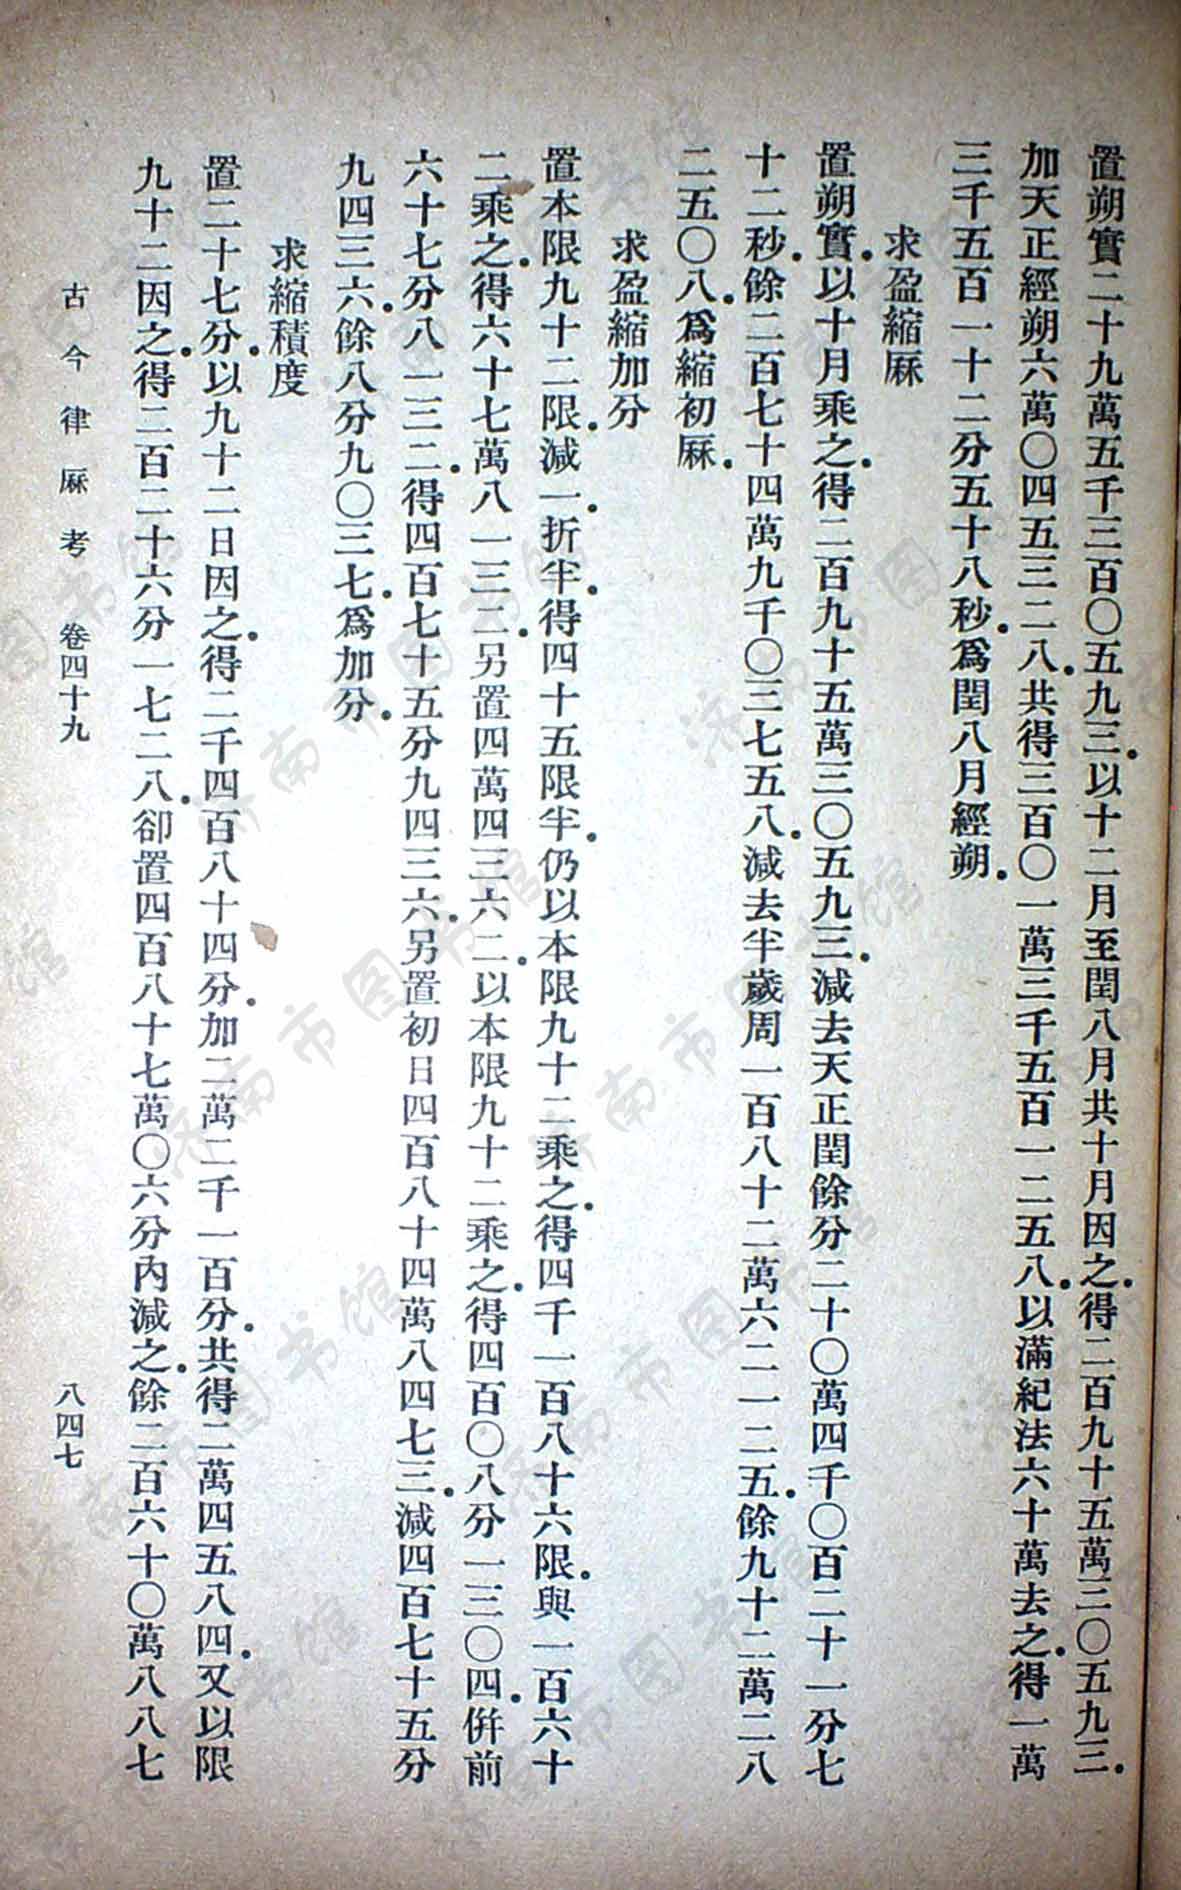 置朔實二十九萬五千三百〇五九三以十二月至閏八月共十月因之得二百九十五萬三〇五九三
加天正經朔六萬〇四五三二八共得三百〇一萬三千五百一二五八以滿紀法六十萬去之得一萬
三千五百一十二分五十八秒爲閏八月經朔
求盈縮厤
置朔實以十月乘之得二百九十五萬三〇五九三減去天正閏餘分二十〇萬四千〇百二十一分七
十二秒餘二百七十四萬九千〇三七五八減去半歲周一百八十二萬六二一二五餘九十二萬二八
二五〇八爲縮初厤
求盈縮加分
置本限九十二限減一折半得四十五限半仍以本限九十二乘之得四千一百八十六限與一百六十
二乘之得六十七萬八一三二另置四萬四三六二以本限九十二乘之得四百〇八分一三〇四倂前
六十七分八一三二得四百七十五分九四三六另置初日四百八十四萬八四七三減四百七十五分
九四三六餘八分九〇三七爲加分
求縮積度
置二十七分以九十二日因之得二千四百八十四分加二萬二千一百分共得二萬四五八四又以限
九十二因之得二百二十六分一七二八卻置四百八十七萬〇六分內減之餘二百六十〇萬八八七
古今律厤考 卷四十九 八四七